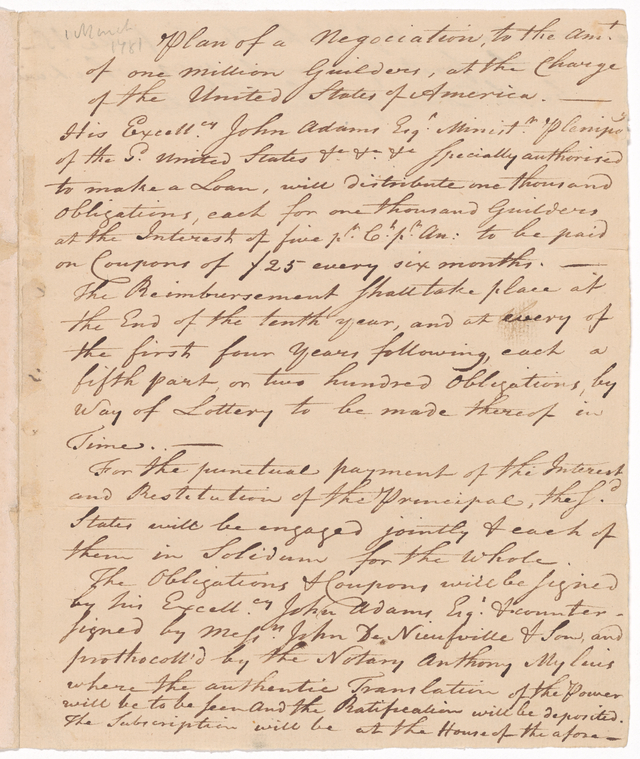 1 March
1781
Plan of a Negociation, to the Amt.
of one million Guilders, at the Charge
of the United States of America. —
His Excell:cy John Adams Esqr. Minist:r Plenipo
of the Sd. United States &c &c &c specially authorised
to make a Loan, will distribute one thousand
Obligations, each for one thousand Guilders
at the Interest of five pr. Ct. pr. An: to be paid
on Coupons of ƒ25 every six months. —
The Reimbursement shall take place at
the End of the tenth year, and at every of
the first four Years following, each a
fifth part, or two hundred Obligations, by
Way of Lottery to be made thereof in
Time. —
For the punctual payment of the Interest
and Restitution of the Principal, the Sd.
States will be engaged jointly & each of
them in Solidum for the Whole.
The Obligations & Coupons will be signed
by his Excell:cy John Adams Esqr. & counter-
signed by Messrs. John De Neufville & Son, and
prothocoll'd by the Notary Anthony Mylius
where the authentic Translation of the Power
will be to be seen and the Ratification will be deposited.
The Subscription will be at the House of the afore-